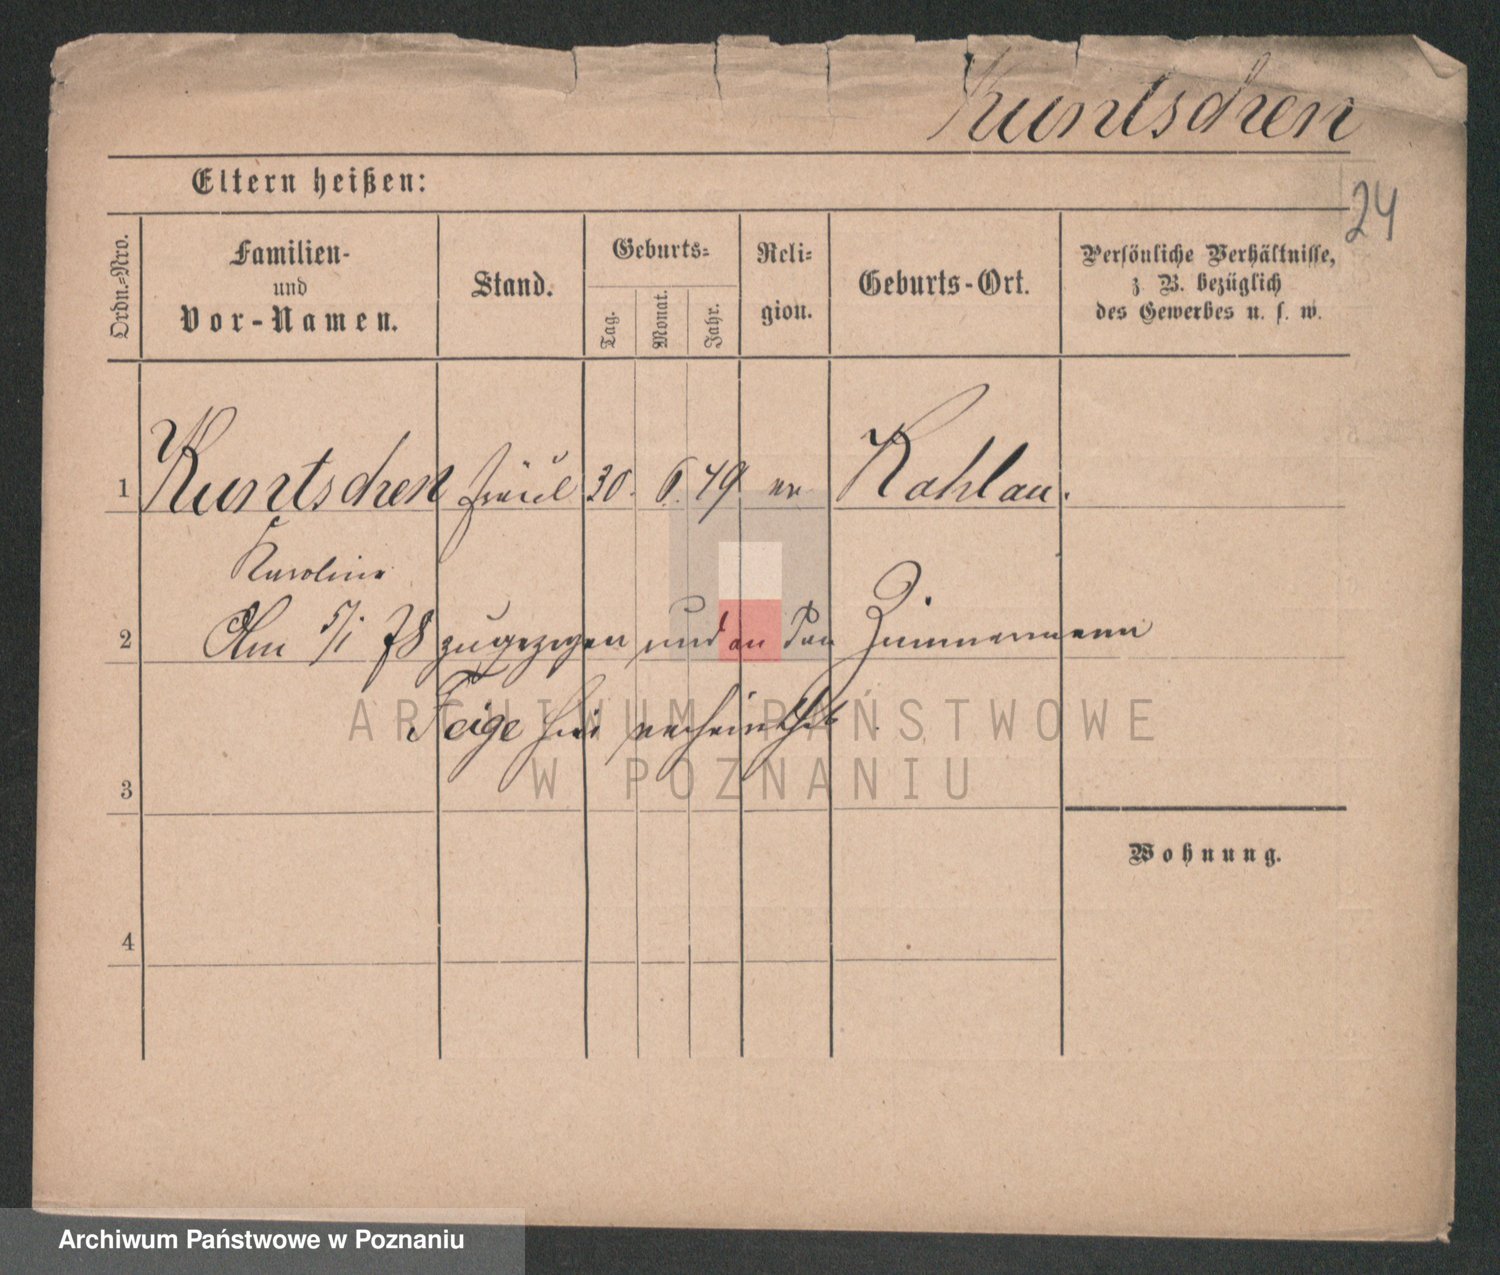 Kuntschen
24
Eltern heißen:
Ordn.-Nro.
Familien-
und
Vor-Namen.
Stand.
Geburts-
Tag.
Monat.
Jahr.
Reli-
gion.
Geburts-Ort.
Persönliche Verhältnisse,
z B. bezüglich
des Gewerbes u. s. w.
1 Kuntschen 30. 6. 49 ev Kahlau.
Karoline
2 Am 5/1 78 zugezogen und an den Zimmermann
Feige hier verheirathet
ARCHIWUM PAŃSTWOWE
W POZNANIU
3
Wohnung.
4
Archiwum Państwowe w Poznaniu